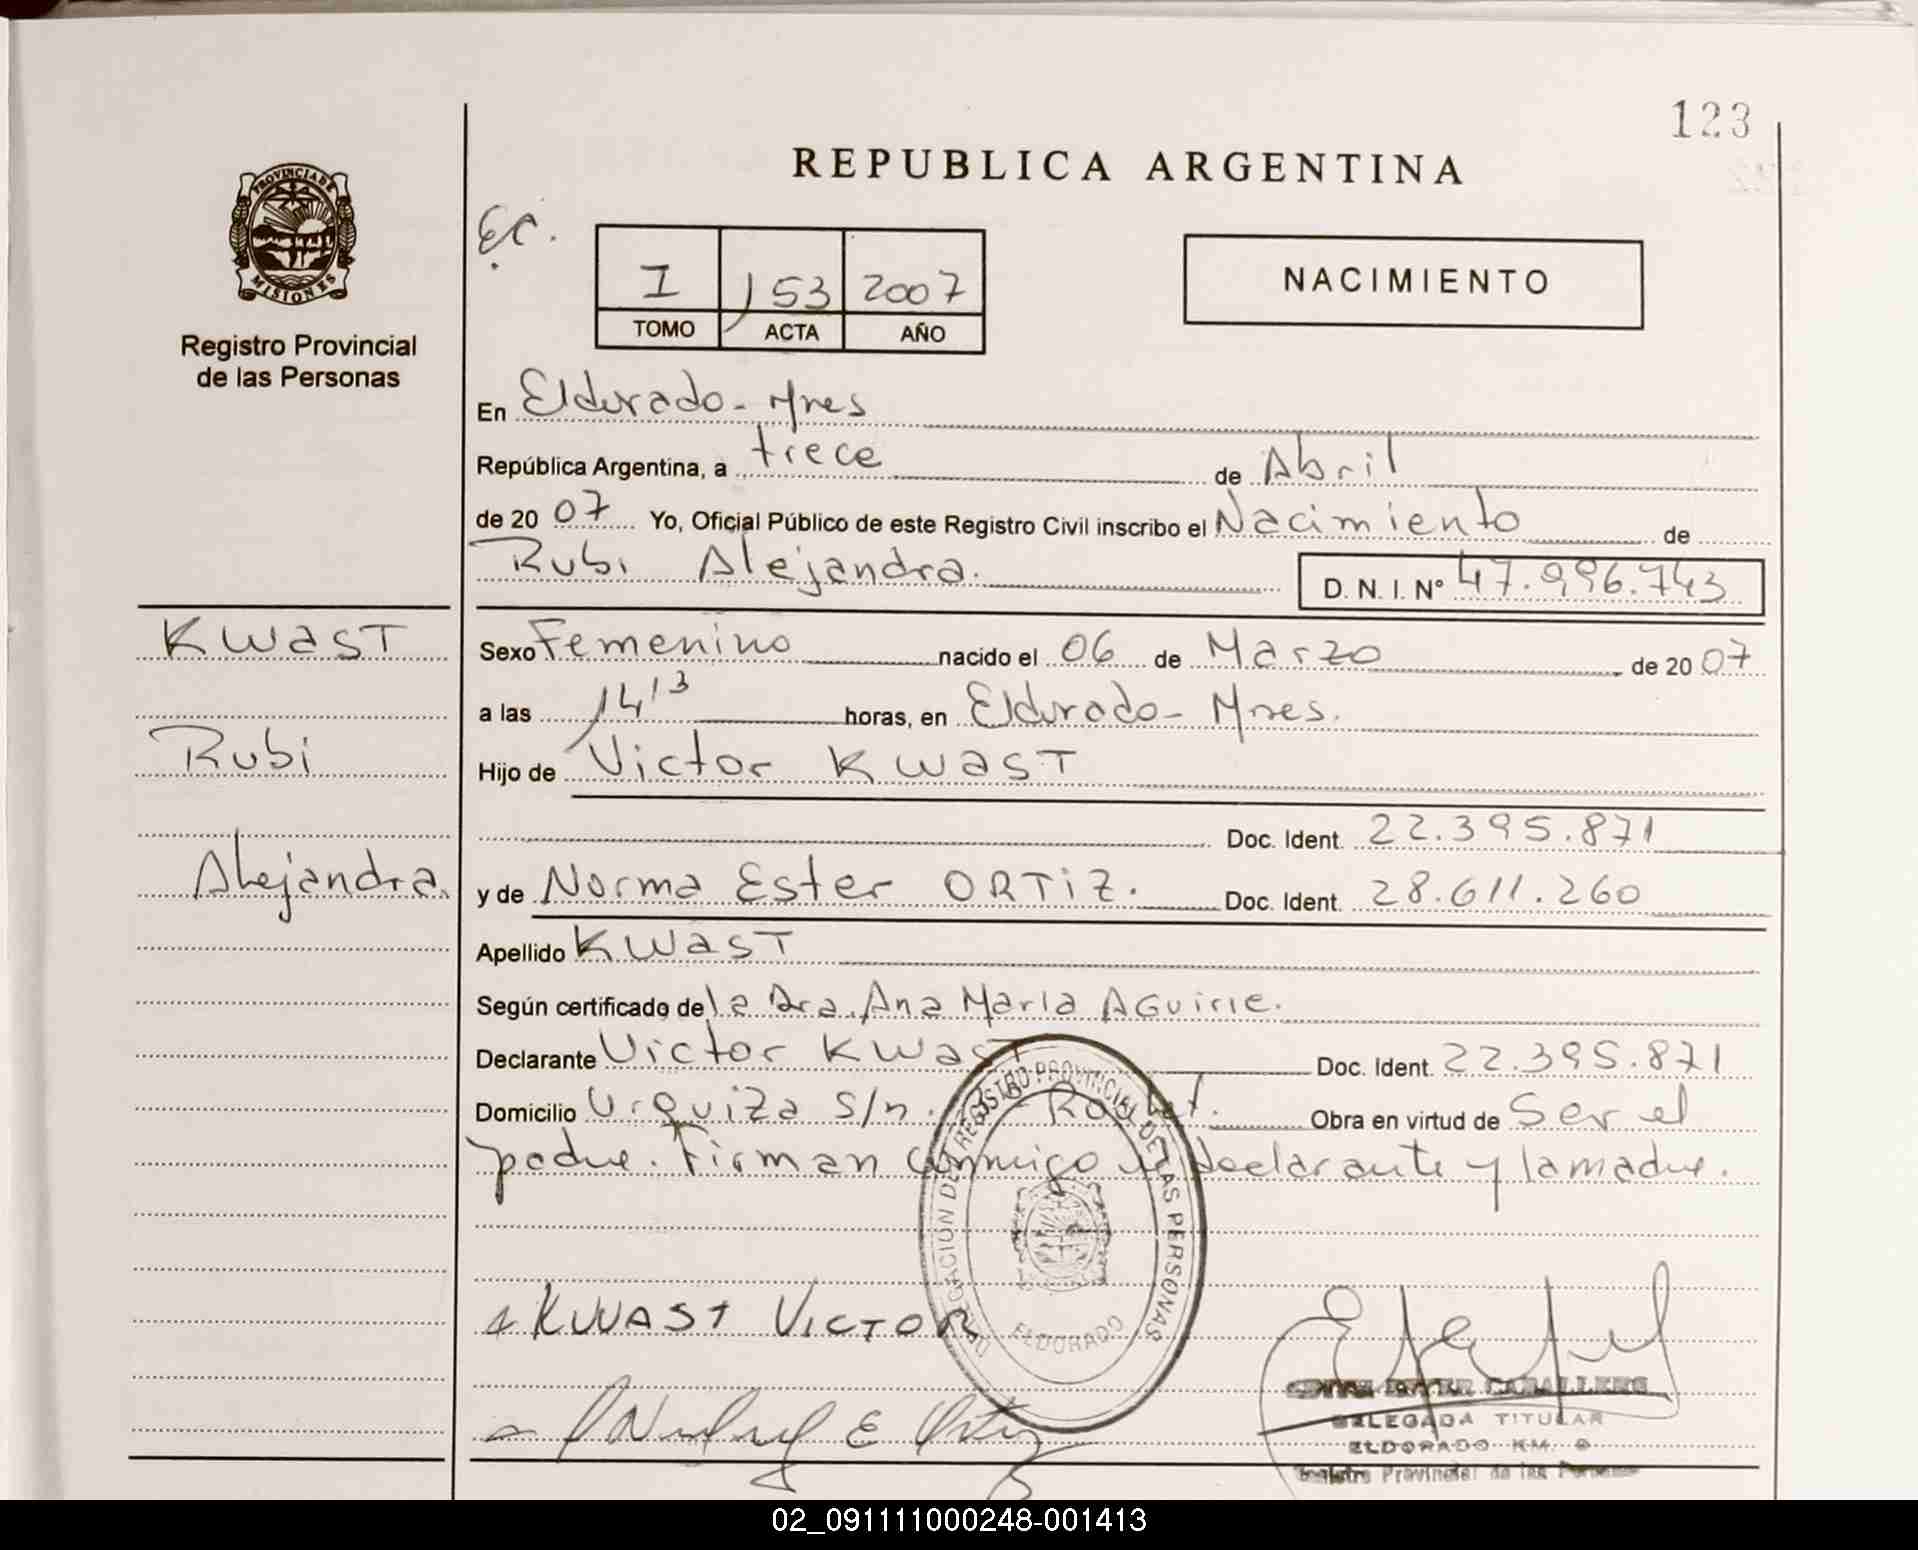 123
REPUBLICA ARGENTINA
PROVINCIA DE
MISIONES
Registro Provincial
de las Personas
I 153 2007
TOMO ACTA AÑO
NACIMIENTO
En Eldorado - Mnes
República Argentina, a trece de Abril
de 20 07 Yo, Oficial Público de este Registro Civil inscribo el Nacimiento de
Rubi Alejandra. D. N. I. Nº 47.996.743
KWAST
Rubi
Alejandra.
Sexo Femenino nacido el 06 de Marzo de 20 07
a las 14 13 horas, en Eldorado - Mnes.
Hijo de Victor KWAST
Doc. Ident. 22.395.871
y de Norma Ester ORTiZ. Doc. Ident. 28.611.260
Apellido KWAST
Según certificado de la Dra. Ana Maria AGuirre.
Declarante Victor KWAST Doc. Ident. 22.395.871
Domicilio Urquiza s/n. Obra en virtud de Ser el
padre. Firman conmigo el declarante y la madre.
DELEGACIÓN DEL REGISTRO PROVINCIAL DE LAS PERSONAS
ELDORADO
KWAST VICTOR
E Ortiz
CABALLERO
DELEGADA TITULAR
ELDORADO KM. 9
Registro Provincial de las Personas
02_091111000248-001413